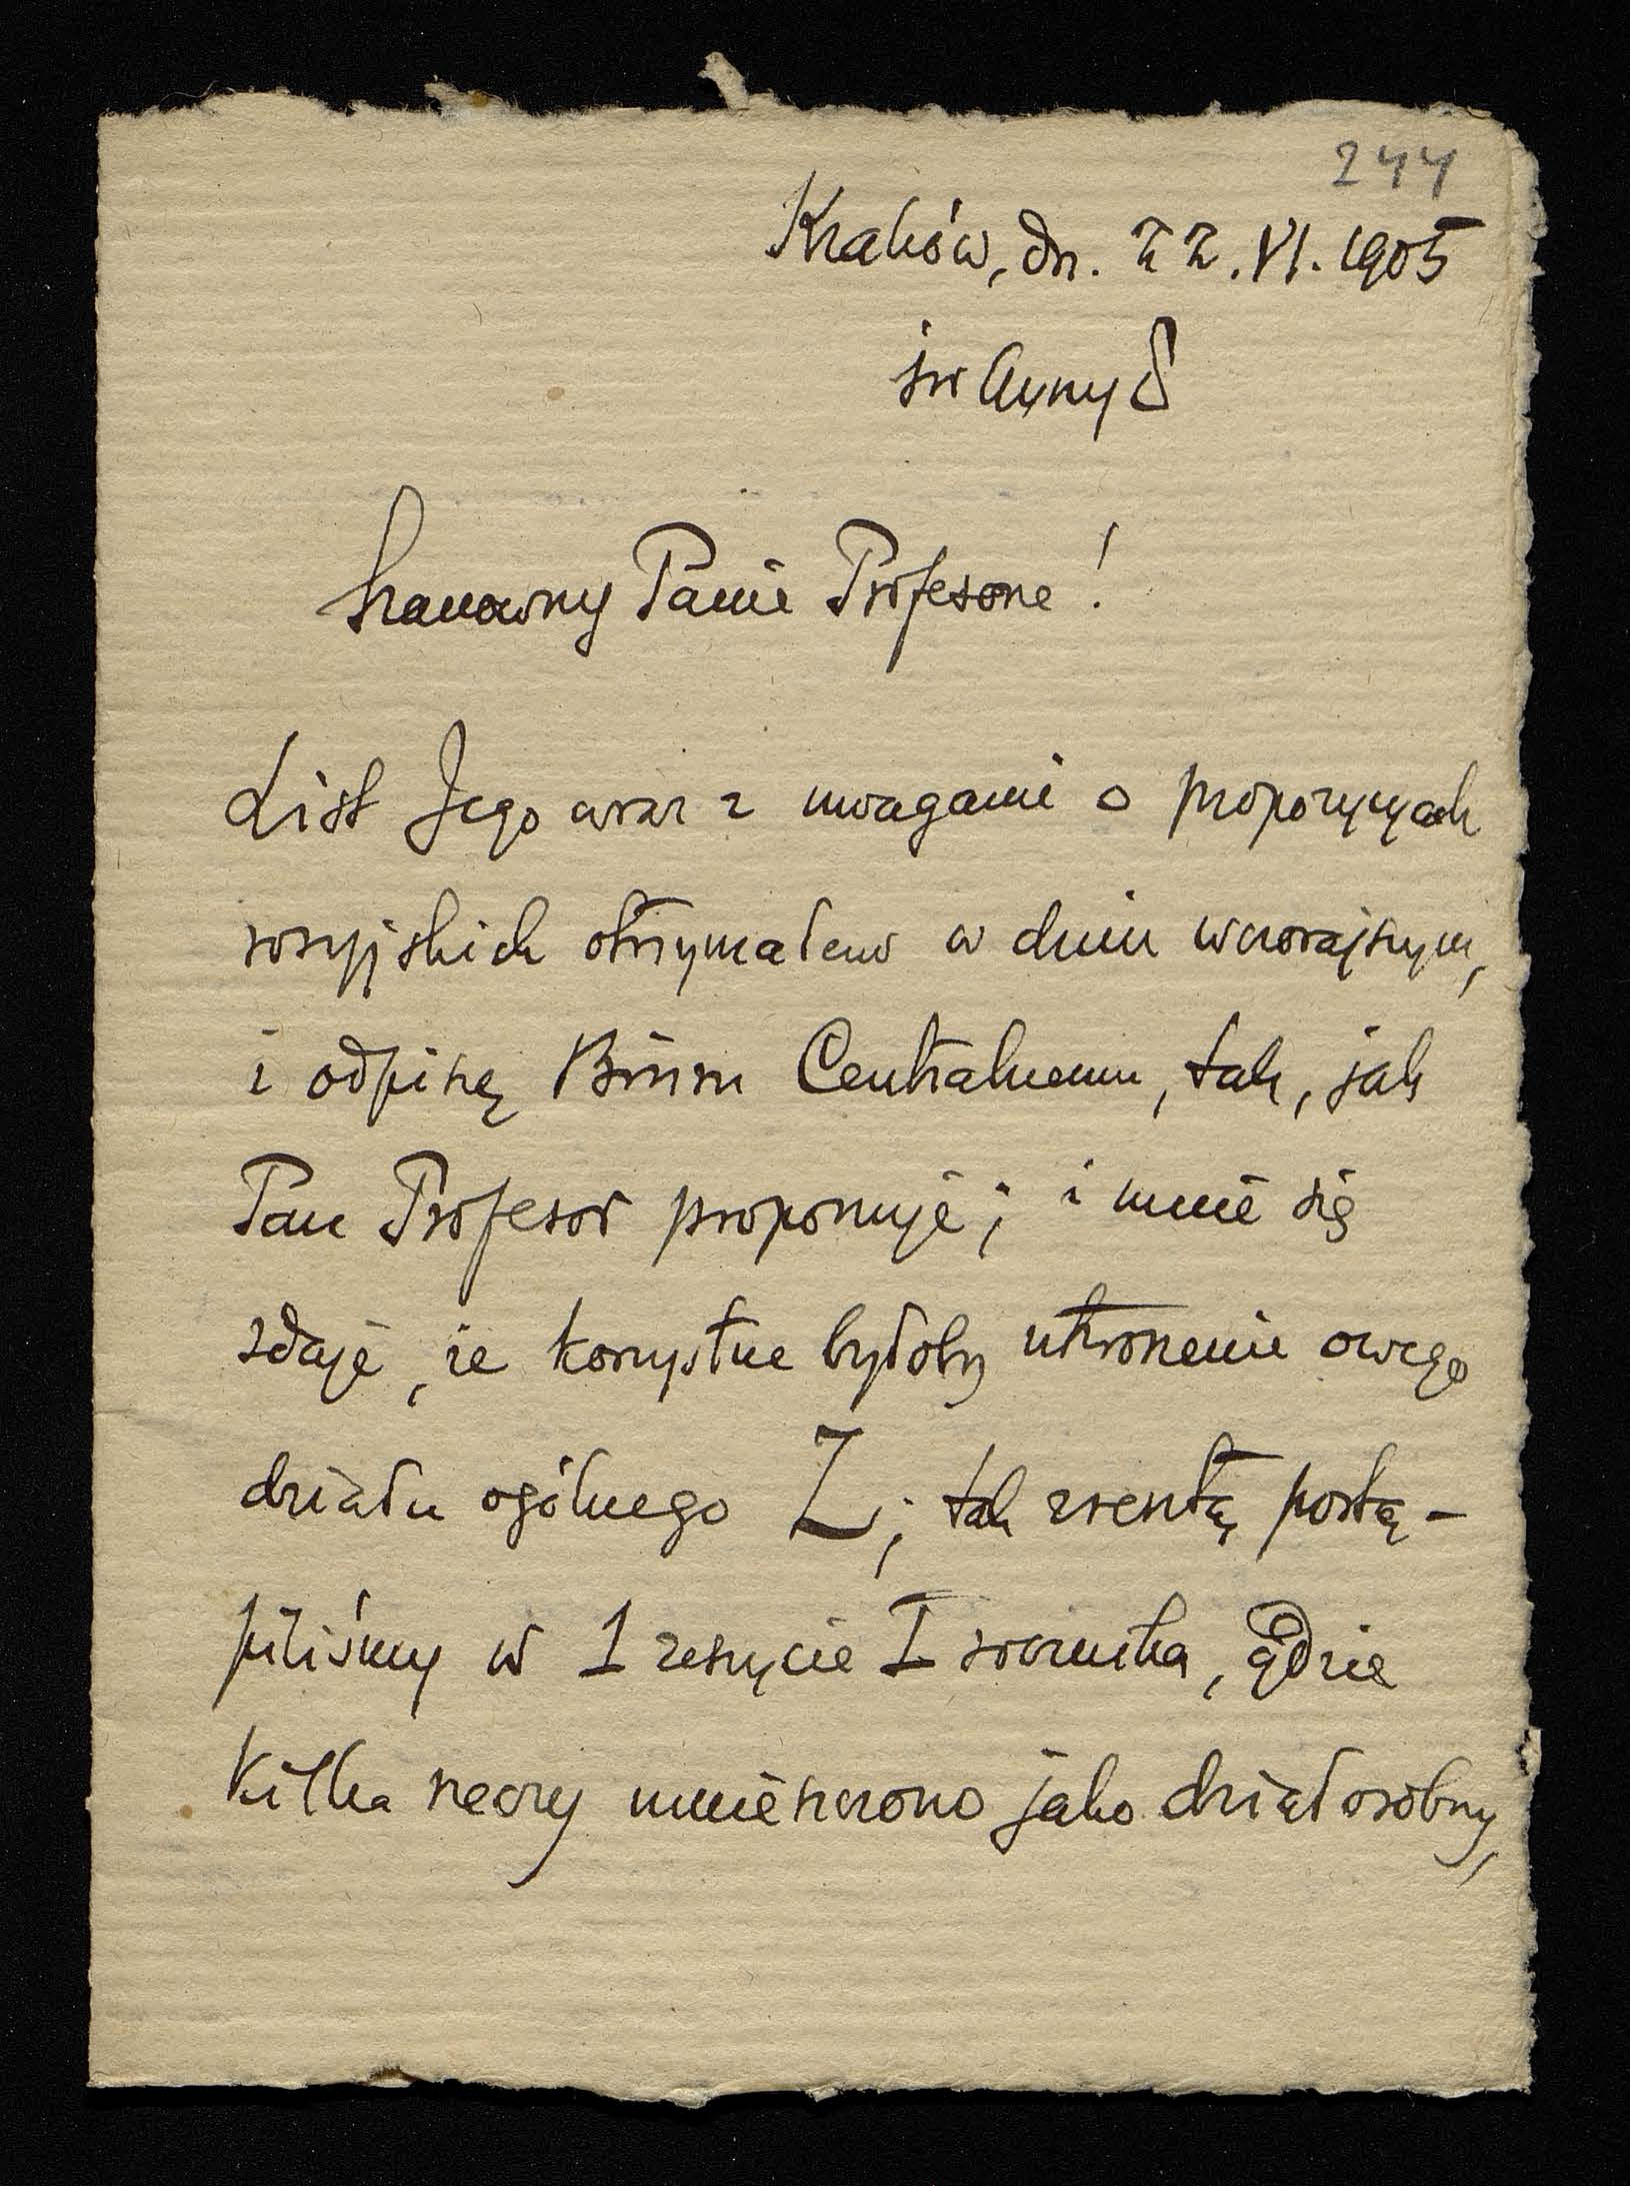 244
Kraków, dn. 22. VI. 1905
św Anny 8
Szanowny Panie Profesorze!
List Jego wraz z uwagami o propozycyach
rosyjskich otrzymałem w dniu wczorajszym,
i odpiszę Biuru Centralnemu, tak, jak
Pan Profesor proponuje; i mnie się
zdaje, że korzystne byłoby utworzenie owego
działu ogólnego Z; tak zresztą postą-
piliśmy w 1 zeszycie I rocznika, gdzie
kilka rzeczy umieszczono jako dział osobny,